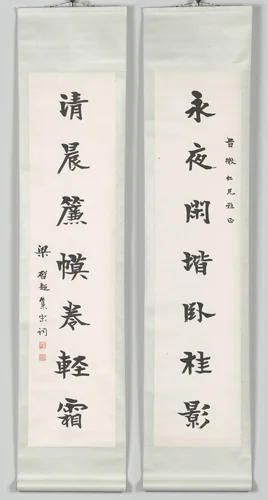 永夜閑堦臥桂影
晉撤仁兄雅正
清晨簾幙卷輕霜
梁啟超集宋詞